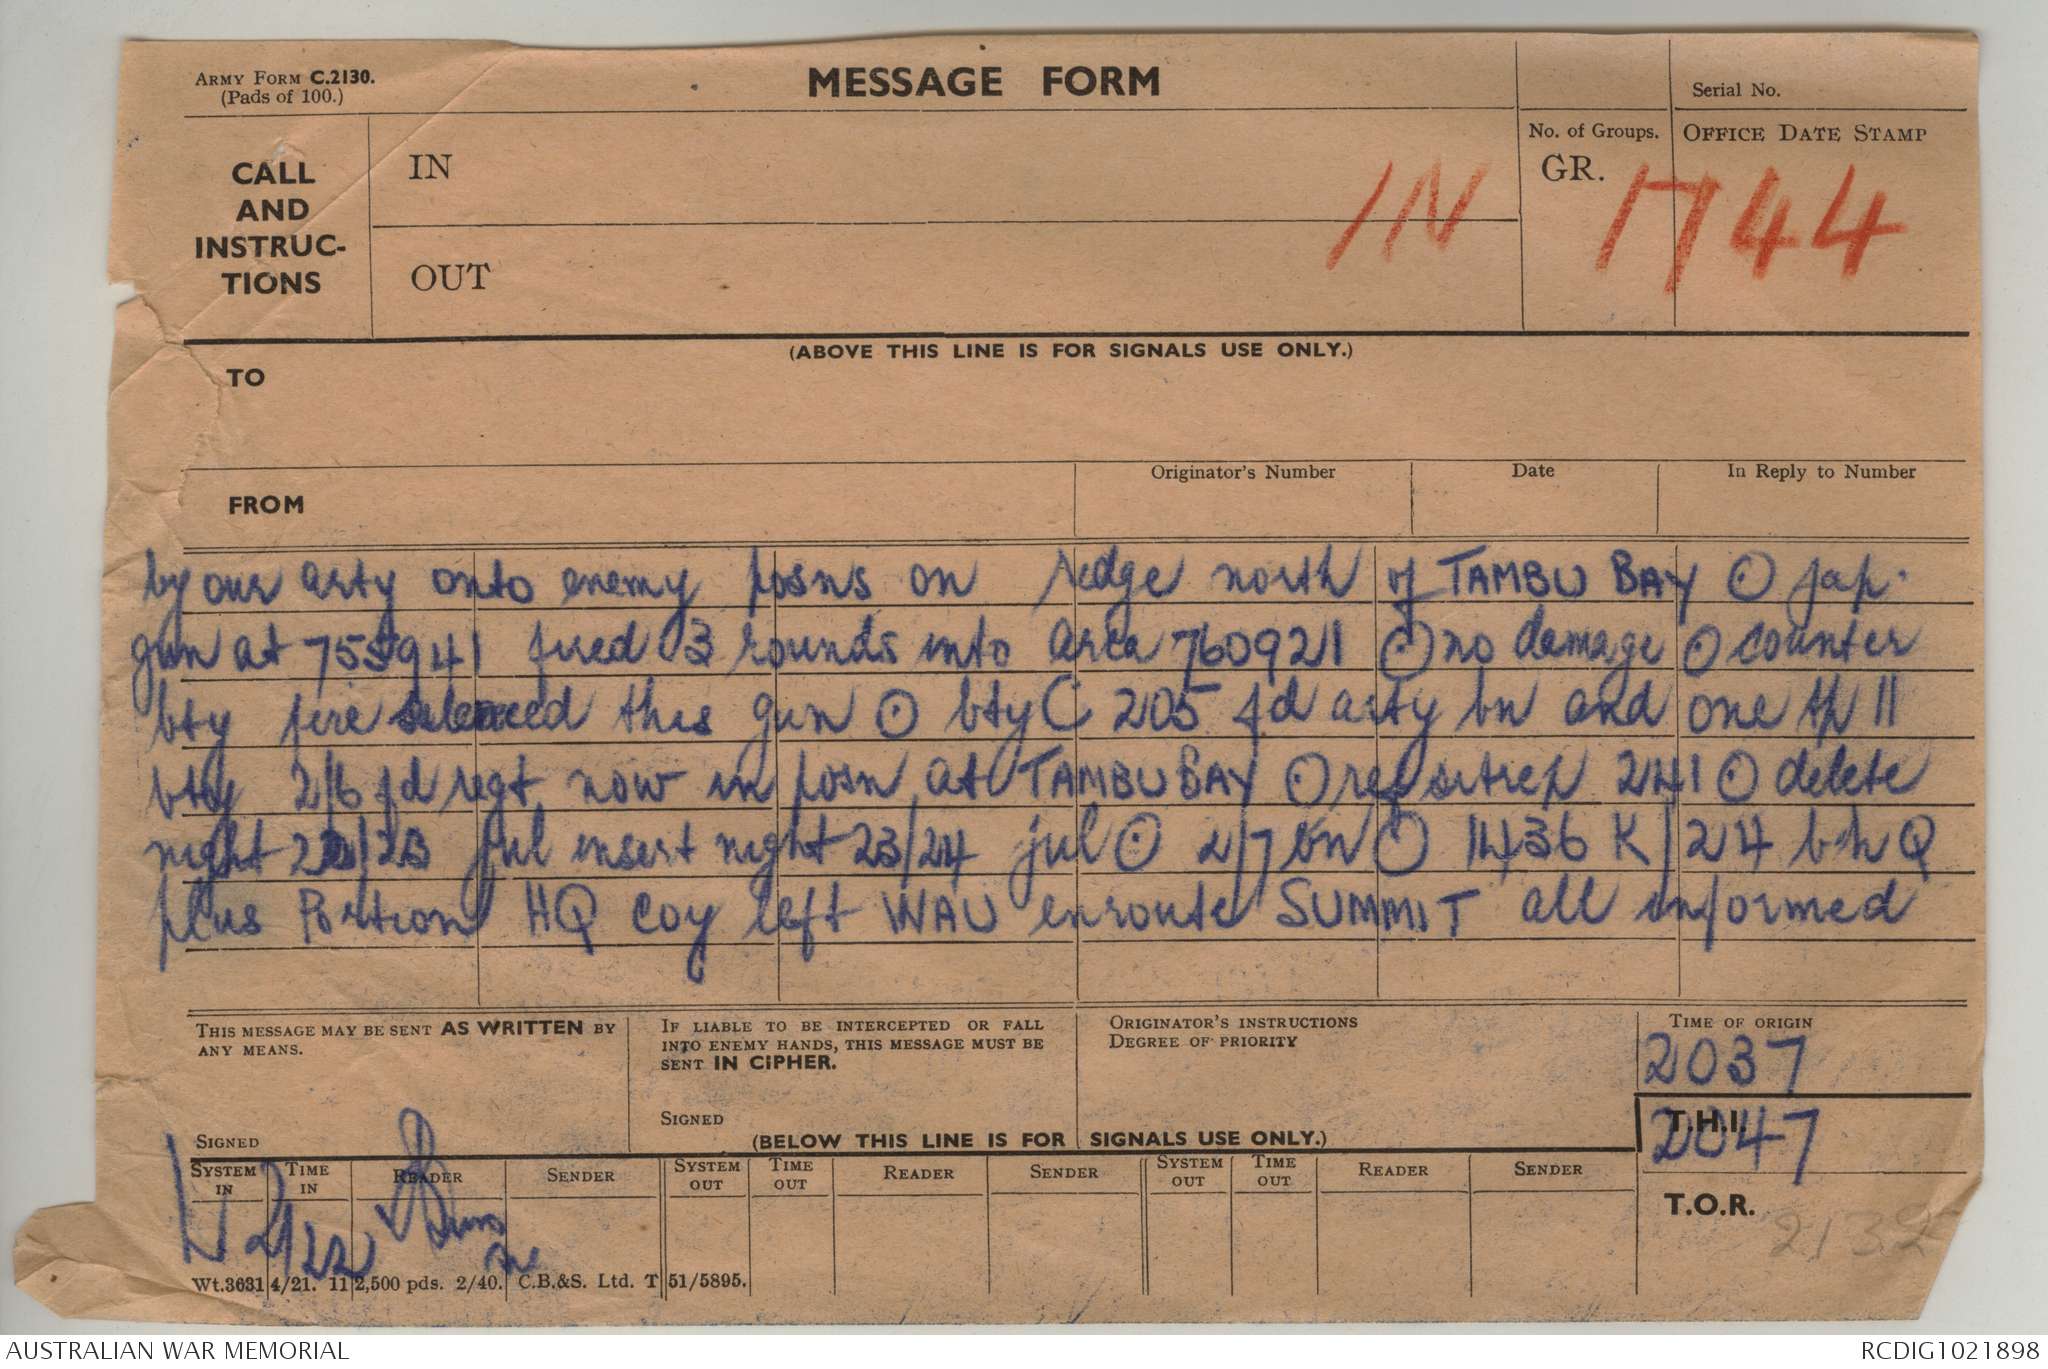 ARMY FORM C.2130.
(Pads of 100.)
MESSAGE FORM
Serial No.
CALL
AND
INSTRUC-
TIONS
IN
OUT
IN
No. of Groups.
GR.
OFFICE DATE STAMP
1744
(ABOVE THIS LINE IS FOR SIGNALS USE ONLY.)
TO
FROM
Originator's Number
Date
In Reply to Number
by our arty onto enemy posns on ridge north of TAMBU BAY ⊙ jap.
gun at 755941 fired 3 rounds into area 760921 ⊙ no damage ⊙ counter
bty fire silenced this gun ⊙ bty C 205 fd arty bn and one tp 11
bty 2/6 fd regt now in posn at TAMBU BAY ⊙ ref sitrep 241 ⊙ delete
night 22/23 jul insert night 23/24 jul ⊙ 2/7 bn ⊙ 1436 K/24 bhQ
plus Portion HQ coy left WAU enroute SUMMIT all informed
THIS MESSAGE MAY BE SENT AS WRITTEN BY
ANY MEANS.
SIGNED
IF LIABLE TO BE INTERCEPTED OR FALL
INTO ENEMY HANDS, THIS MESSAGE MUST BE
SENT IN CIPHER.
SIGNED
ORIGINATOR'S INSTRUCTIONS
DEGREE OF PRIORITY
TIME OF ORIGIN
2037
T.H.I.
2047
T.O.R.
2132
(BELOW THIS LINE IS FOR SIGNALS USE ONLY.)
SYSTEM IN
TIME IN
READER
SENDER
SYSTEM OUT
TIME OUT
READER
SENDER
SYSTEM OUT
TIME OUT
READER
SENDER
Wt.3631 4/21. 112,500 pds. 2/40. C.B.&S. Ltd. T 51/5895.
AUSTRALIAN WAR MEMORIAL
RCDIG1021898